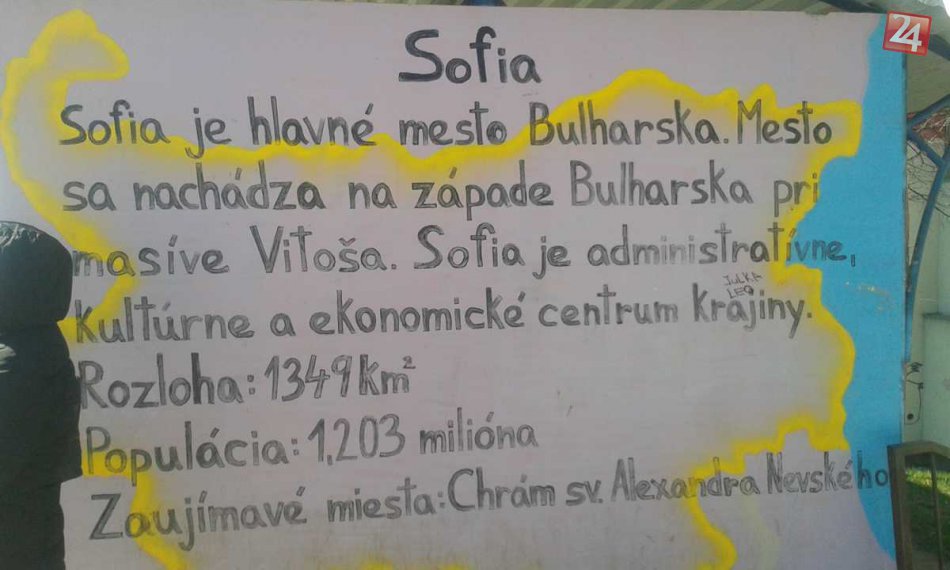 24
Sofia
Sofia je hlavné mesto Bulharska. Mesto
sa nachádza na západe Bulharska pri
masíve Vitoša. Sofia je administratívne,
JULKA
LEO
kultúrne a ekonomické centrum krajiny.
Rozloha: 1349 km²
Populácia: 1,203 milióna
Zaujímavé miesta: Chrám sv. Alexandra Nevského